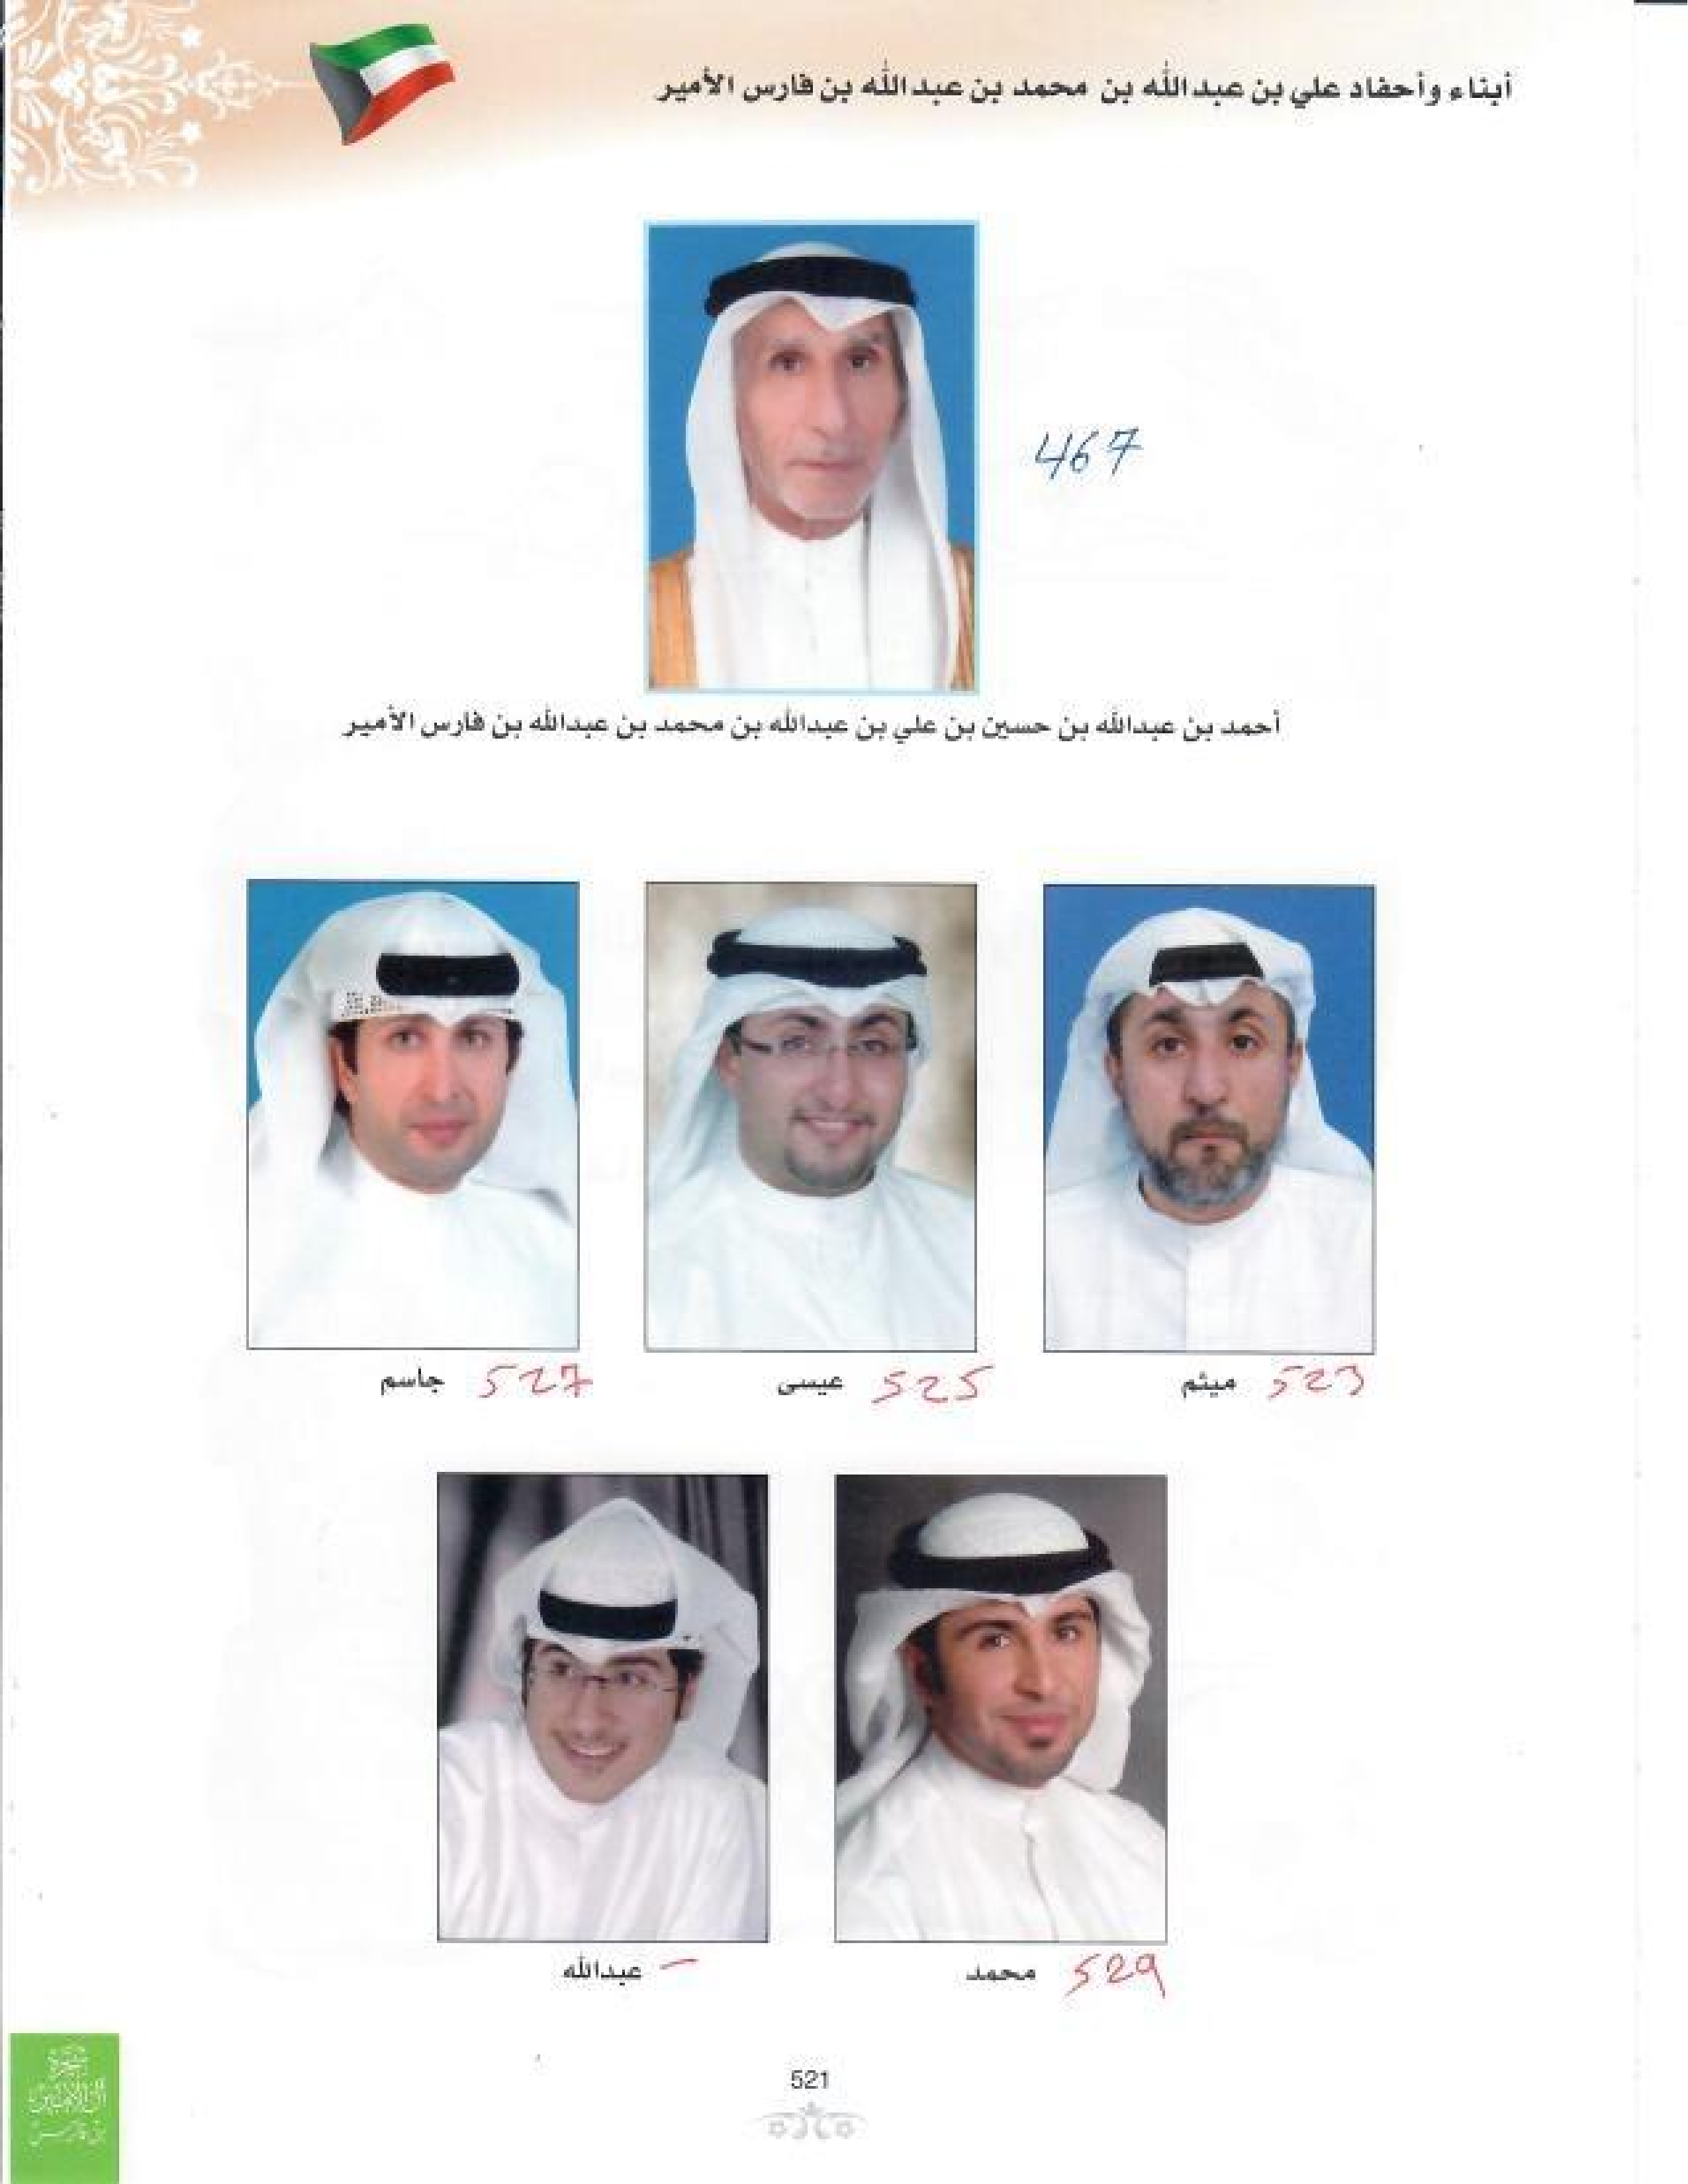 أبناء وأحفاد علي بن عبدالله بن محمد بن عبدالله بن فارس الأمير
467
أحمد بن عبدالله بن حسين بن علي بن عبدالله بن محمد بن عبدالله بن فارس الأمير
ميثم 523
عيسى 525
جاسم 527
محمد 529
عبدالله -
521
شجرة
آل الأمير
بن فارس